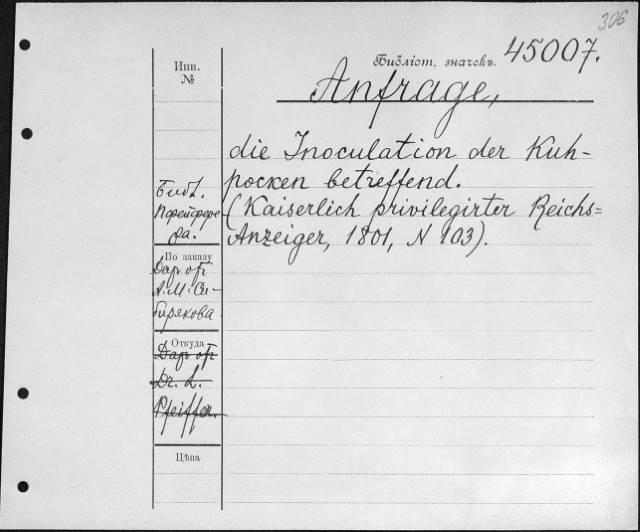 306
Библіот. значекъ. 45007.
Инв.
№
Anfrage,
die Inoculation der Kuh-
pocken betreffend.
(Kaiserlich privilegirter Reichs=
Anzeiger, 1801, N 103).
Библ.
Пфейфера
По заказу
Даръ от
А. М. Си-
бирякова
Откуда
Даръ от
Dr. L.
Pfeiffer.
Цѣна